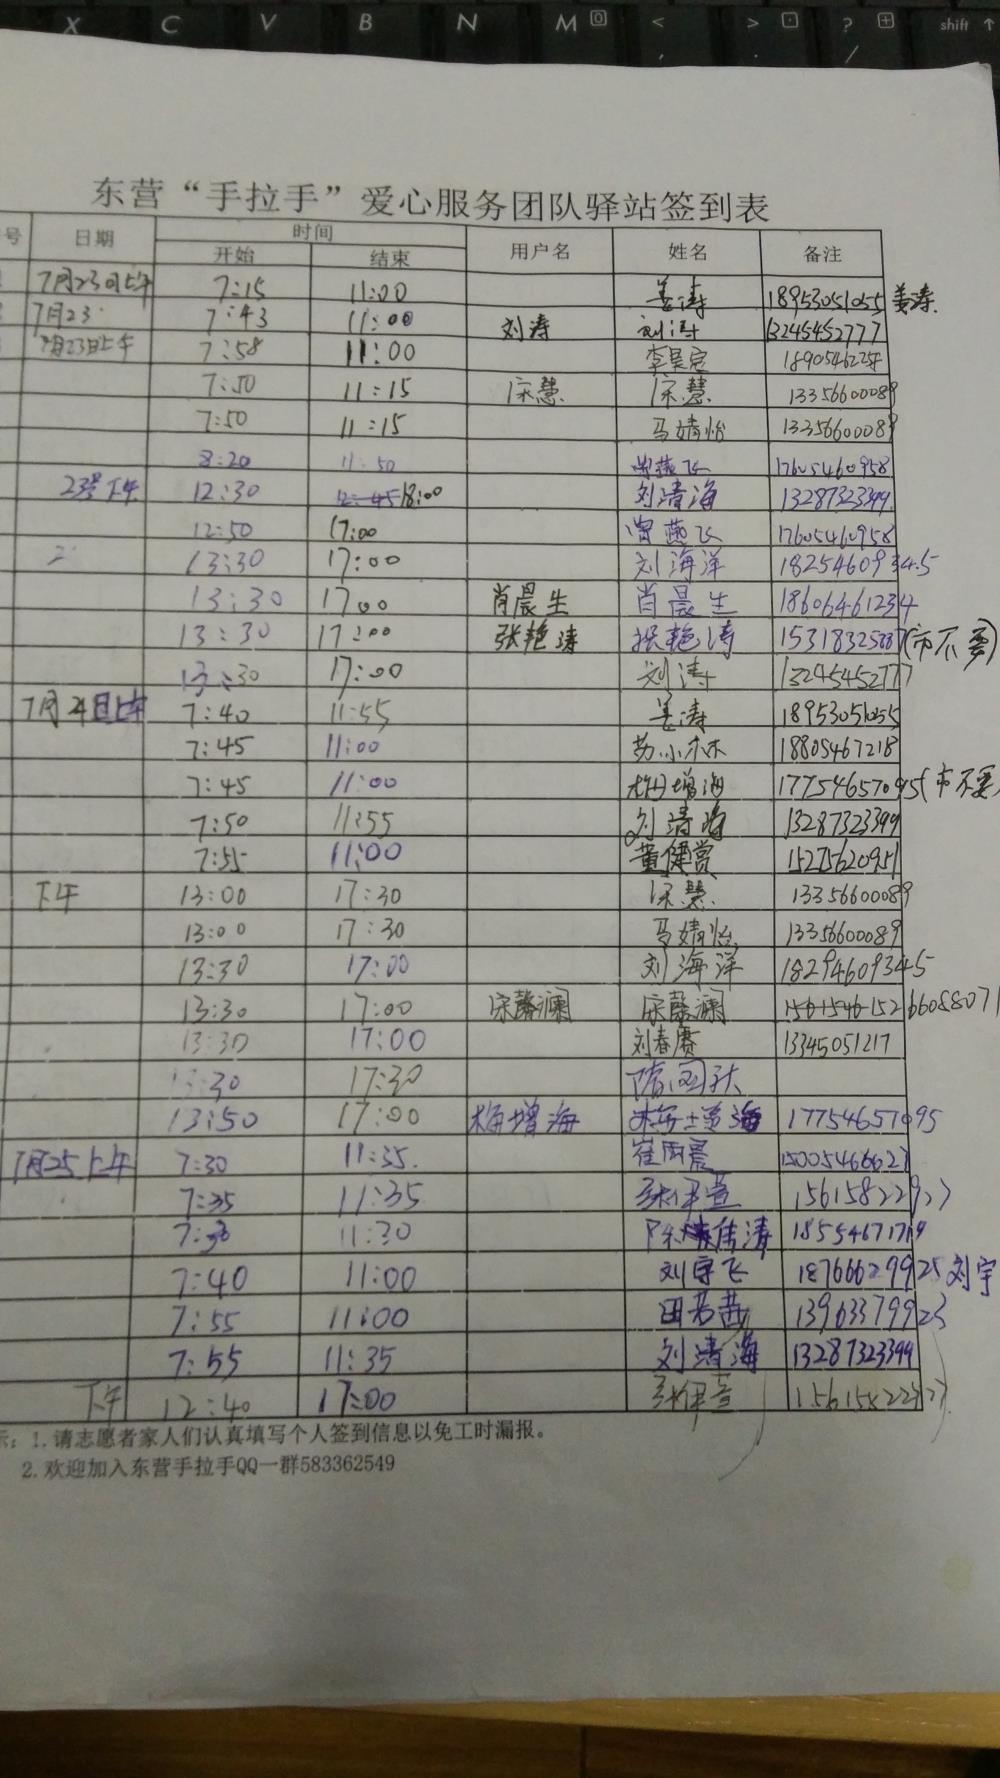 X C V B N M 0 < , > . ? / shift ↑
东营“手拉手”爱心服务团队驿站签到表
号 日期 时间 用户名 姓名 备注
开始 结束
7月23日上午 7:15 11:00 姜涛 18953051055 姜涛.
7月23 7:43 11:00 刘涛 刘涛 13245452777
7月23日上午 7:58 11:00
7:50 11:15 宋慧 宋慧 13356600089
7:50 11:15 马婧怡 13356600089
8:20 11:50 曾燕飞 17605460958
23号下午 12:30 12:45 18:00 刘清海 13287323399
12:50 17:00 曾燕飞 17605460958
13:30 17:00 刘海洋 18254609345
13:30 17:00 肖晨生 肖晨生 18606461234
13:30 17:00 张艳涛 张艳涛 (市不要)
13:30 17:00 刘涛 13245452777
7月24日上午 7:40 11:55 姜涛 18953051055
7:45 11:00 苏小林 18805467218
7:45 11:00 梅增海 17754657095(市不要)
7:50 11:55 刘清海 13287323399
7:55 11:00 黄健赏 15275620951
下午 13:00 17:30 宋慧 13356600089
13:00 17:30 马婧怡 13356600089
13:30 17:00 刘海洋 18294609345
13:30 17:00 宋馨澜 宋馨澜
13:30 17:00 刘春赛 13345051217
13:30 17:30
13:50 17:00 梅增海 梅增海 17754657095
7月25上午 7:30 11:35. 崔雨晨 15005466627
7:35 11:35 张伊萱 15615822927
7:30 11:30
7:40 11:00 刘宇飞 18766629925 刘宇
7:55 11:00 田若茜 13963379923
7:55 11:35 刘清海 13287323399
下午 12:40 17:00 张伊萱
示：1.请志愿者家人们认真填写个人签到信息以免工时漏报。
2.欢迎加入东营手拉手QQ一群583362549